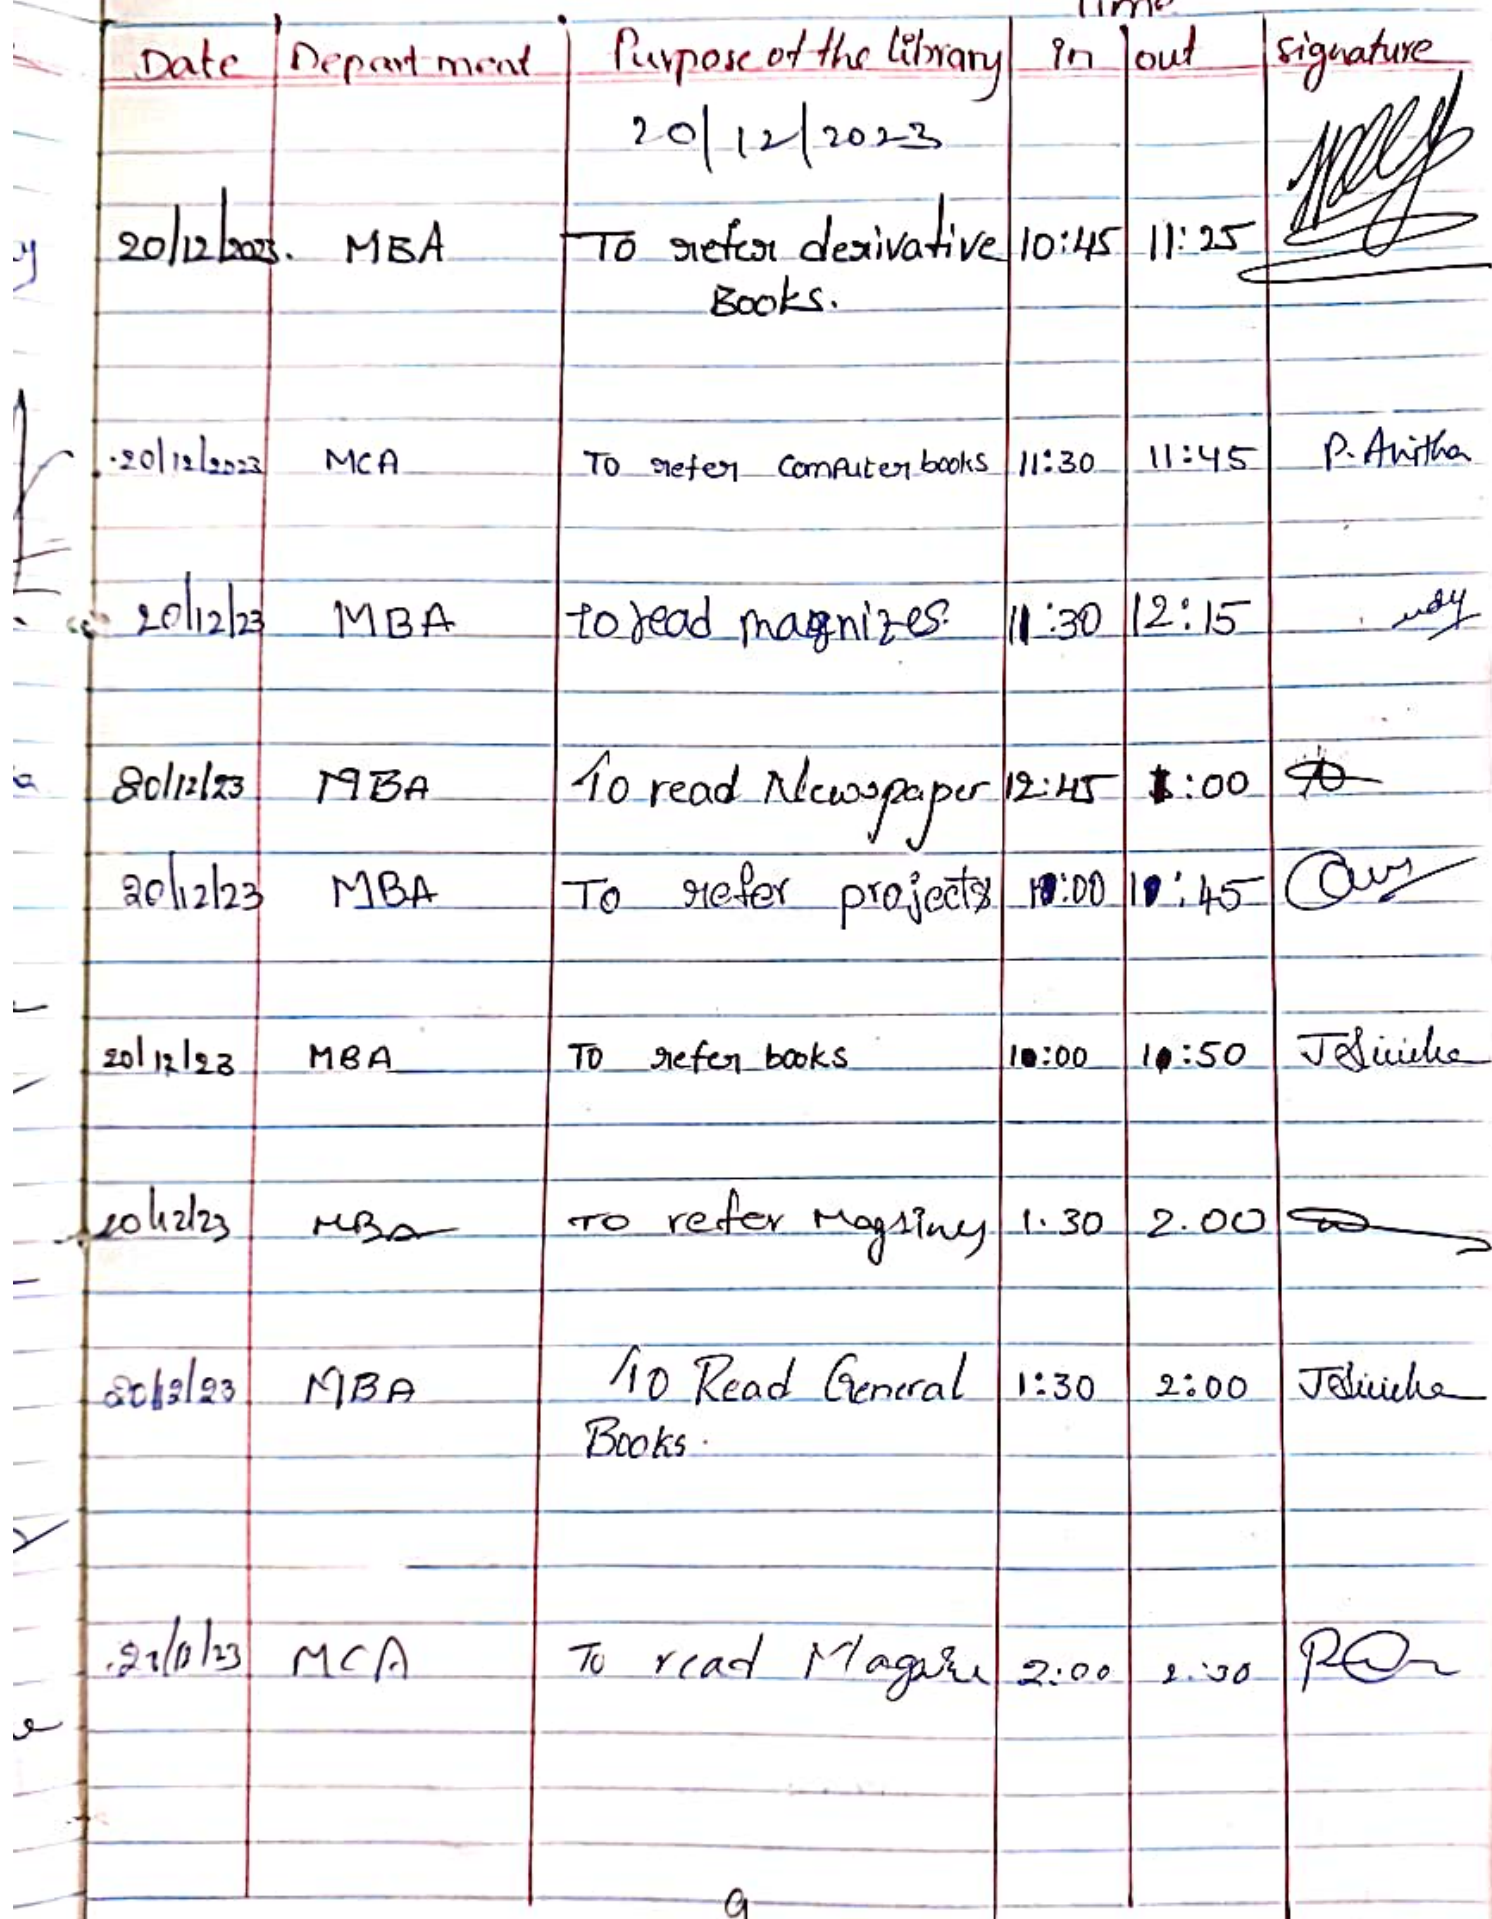 Time
Date Department Purpose of the library in out signature
20/12/2023
20/12/2023. MBA To refer derivative 10:45 11:25
Books.
20/12/2023 MCA To refer Computer books 11:30 11:45 P. Anitha
20/12/23 MBA to read magnizes. 11:30 12:15
20/12/23 MBA To read Newspaper 12:45 1:00
20/12/23 MBA To refer projects 10:00 10:45
20/12/23 MBA To refer books 10:00 10:50
20/12/23 MBA To refer Magsines 1.30 2.00
20/12/23 MBA To Read General 1:30 2:00
Books.
MCA To read 2:00 2:30
9